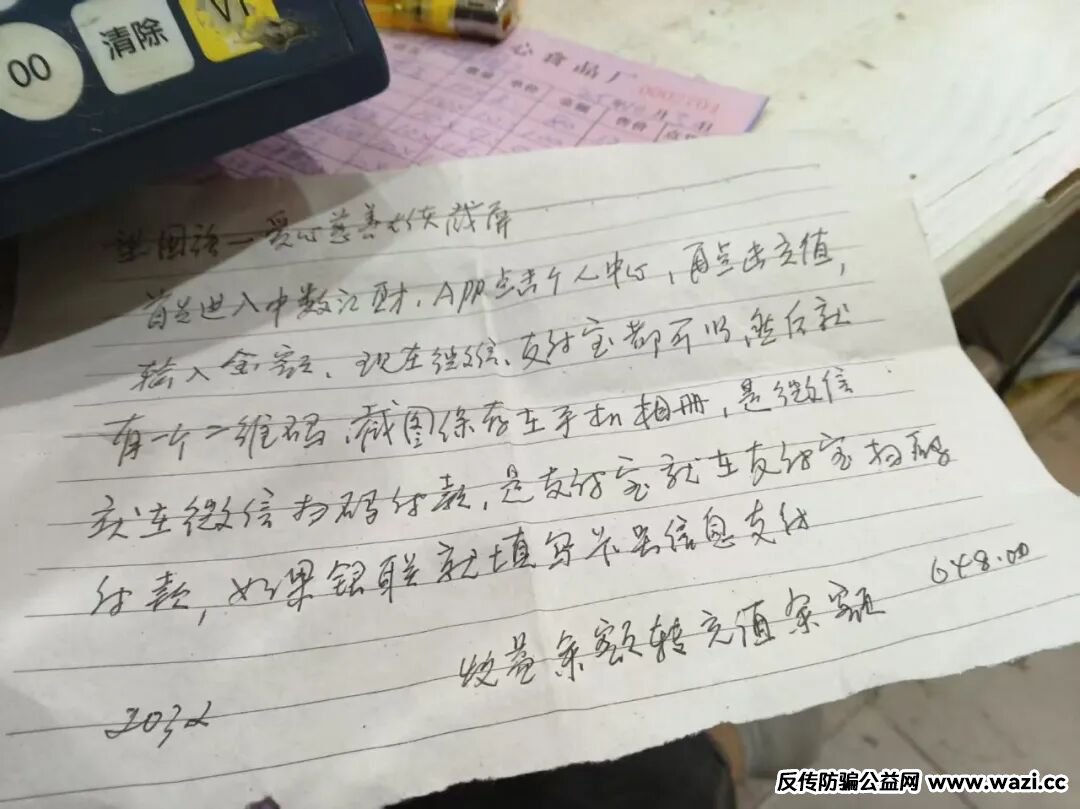 00
清除
心食品厂
0002704
数量 单价 金额 售价
一爱心慈善 截屏
首先进入中数汇财，APP点击个人中心，再点击充值，
输入金额，现在微信、支付宝都可以，然后就
有一个二维码，截图保存在手机相册，是微信
就在微信扫码付款，是支付宝就在支付宝扫码
付款，如果银联就填写卡号信息支付
收益余额转充值余额 648.00
2032
反传防骗公益网 www.wazi.cc